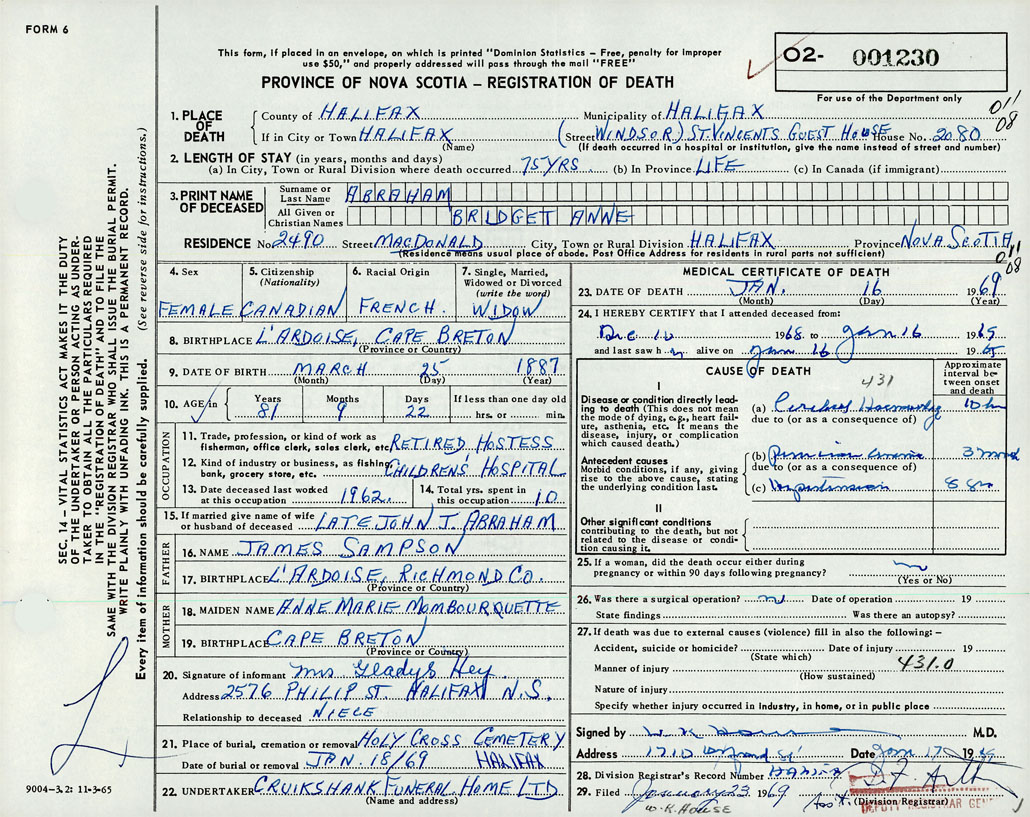 FORM 6
This form, if placed in an envelope, on which is printed "Dominion Statistics – Free, penalty for improper
use $50," and properly addressed will pass through the mail "FREE"
PROVINCE OF NOVA SCOTIA – REGISTRATION OF DEATH
02- 001230
For use of the Department only
011
08
1. PLACE OF DEATH
County of HALIFAX Municipality of HALIFAX
If in City or Town HALIFAX (Street WINDSOR) ST. VINCENTS GUEST HOUSE House No. 2080
(Name) (If death occurred in a hospital or institution, give the name instead of street and number)
2. LENGTH OF STAY (in years, months and days)
(a) In City, Town or Rural Division where death occurred 75 YRS (b) In Province LIFE (c) In Canada (if immigrant)
3. PRINT NAME OF DECEASED
Surname or Last Name ABRAHAM
All Given or Christian Names BRIDGET ANNE
RESIDENCE No 2490 Street MACDONALD City, Town or Rural Division HALIFAX Province NOVA SCOTIA
(Residence means usual place of abode. Post Office Address for residents in rural parts not sufficient)
011
08
4. Sex FEMALE
5. Citizenship (Nationality) CANADIAN
6. Racial Origin FRENCH.
7. Single, Married, Widowed or Divorced (write the word) WIDOW
8. BIRTHPLACE L'ARDOISE, CAPE BRETON
(Province or Country)
9. DATE OF BIRTH MARCH 25 1887
(Month) (Day) (Year)
10. AGE in Years 81 Months 9 Days 22 If less than one day old hrs. or min.
OCCUPATION
11. Trade, profession, or kind of work as
fisherman, office clerk, sales clerk, etc. RETIRED HOSTESS
12. Kind of industry or business, as fishing,
bank, grocery store, etc. CHILDREN'S HOSPITAL
13. Date deceased last worked
at this occupation 1962.
14. Total yrs. spent in
this occupation 10
15. If married give name of wife
or husband of deceased LATE JOHN J. ABRAHAM
FATHER
16. NAME JAMES SAMPSON
17. BIRTHPLACE L'ARDOISE, RICHMOND CO.
(Province or Country)
MOTHER
18. MAIDEN NAME ANNE MARIE MOMBOURQUETTE
19. BIRTHPLACE CAPE BRETON
(Province or Country)
20. Signature of informant Mrs Gladys Hey
Address 2576 PHILIP ST. HALIFAX N.S.
Relationship to deceased NIECE
21. Place of burial, cremation or removal HOLY CROSS CEMETERY
Date of burial or removal JAN. 18/69 HALIFAX
22. UNDERTAKER CRUIKSHANK FUNERAL HOME LTD
(Name and address)
MEDICAL CERTIFICATE OF DEATH
23. DATE OF DEATH JAN. 16 1969
(Month) (Day) (Year)
24. I HEREBY CERTIFY that I attended deceased from:
Dec 10 1968 to Jan 16 1969
and last saw h alive on Jan 16 19
CAUSE OF DEATH
Approximate interval between onset and death
431
I
Disease or condition directly leading
to death (This does not mean
the mode of dying, e.g., heart failure,
asthenia, etc. It means the
disease, injury, or complication
which caused death.)
(a) Cerebral Haemorrhage 10 hr
due to (or as a consequence of)
Antecedent causes
Morbid conditions, if any, giving
rise to the above cause, stating
the underlying condition last.
(b) Pernicious Anaemia 3
due to (or as a consequence of)
(c) Hypertension 8
II
Other significant conditions
contributing to the death, but not
related to the disease or condition
causing it.
25. If a woman, did the death occur either during
pregnancy or within 90 days following pregnancy? no
(Yes or No)
26. Was there a surgical operation? no Date of operation 19
State findings Was there an autopsy?
27. If death was due to external causes (violence) fill in also the following: –
Accident, suicide or homicide? Date of injury 19
(State which)
Manner of injury 431.0
(How sustained)
Nature of injury
Specify whether injury occurred in Industry, in home, or in public place
Signed by M.D.
Address Date Jan 17 19
28. Division Registrar's Record Number
29. Filed January 23 1969
(Division Registrar)
DEPUTY REGISTRAR GEN
W. K. HOUSE
SEC. 14 – VITAL STATISTICS ACT MAKES IT THE DUTY
OF THE UNDERTAKER OR PERSON ACTING AS UNDER-
TAKER TO OBTAIN ALL THE PARTICULARS REQUIRED
IN THE "REGISTRATION OF DEATH" AND TO FILE THE
SAME WITH THE DIVISION REGISTRAR WHO SHALL ISSUE THE BURIAL PERMIT.
WRITE PLAINLY WITH UNFADING INK. THIS IS A PERMANENT RECORD.
Every item of information should be carefully supplied. (See reverse side for instructions.)
9004-3.2: 11-3-65